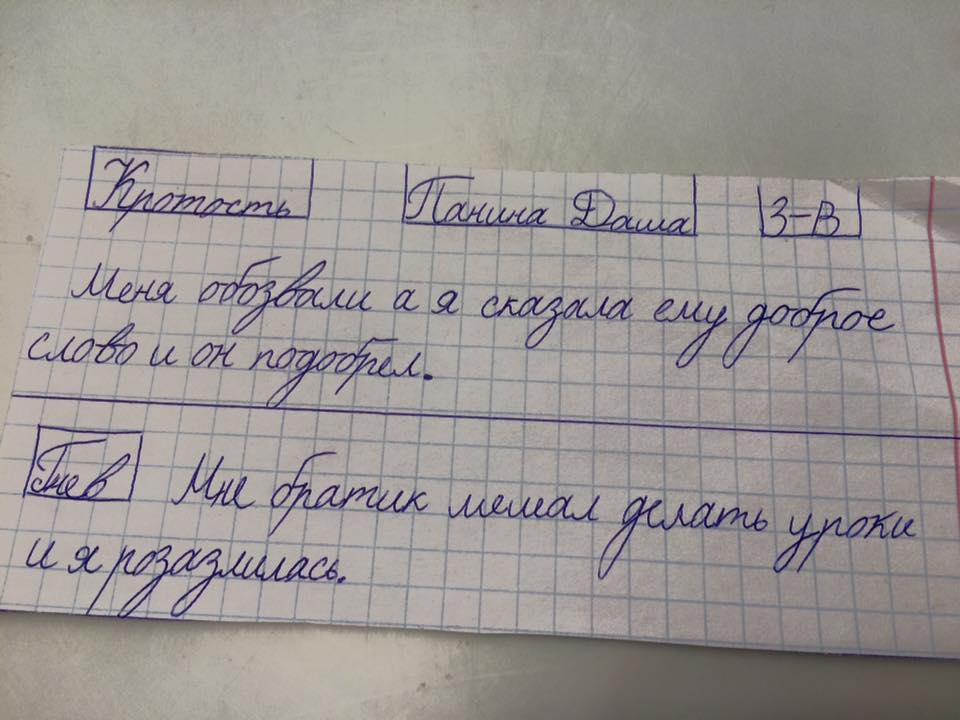 Кротость Панина Даша 3-В
Меня обозвали а я сказала ему доброе
слово и он подобрел.
Гнев Мне братик мешал делать уроки
и я розазлилась.